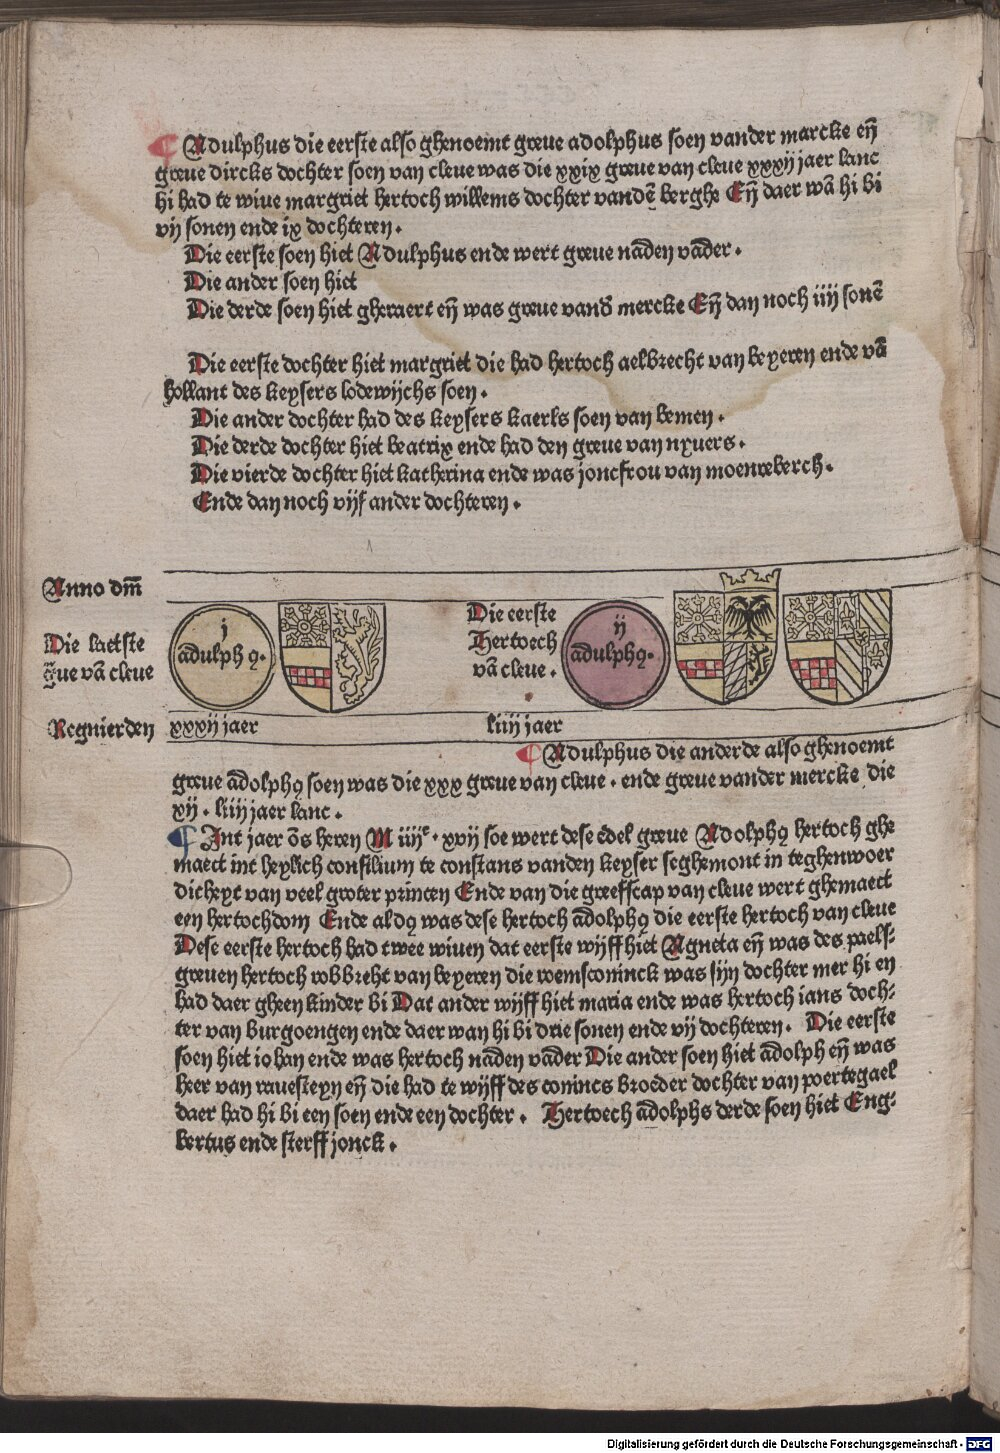 ¶ Adulphus die eerste also ghenoemt greue adolphus soen vander marcke eñ
greue dircks dochter soen van cleue was die xxix greue van cleue xxxij jaer lanc
hi had te wiue margriet hertoch willems dochter vandē berghe Eñ daer wā hi bi
vij sonen ende ix dochteren.
Die eerste soen hiet Adulphus ende wert greue nadēn vāder.
Die ander soen hiet
Die derde soen hiet gheraert eñ was greue vand᷒ mercke Eñ dan noch iiij sonē
Die eerste dochter hiet margriet die had hertoch aelbrecht van beyeren ende vā
hollant des keysers lodewijchs soen.
Die ander dochter had des keysers kaerls soen van bemen.
Die derde dochter hiet beatrix ende had den greue van nyuers.
Die vierde dochter hiet katherina ende was joncfrou van moenreberch.
Ende dan noch vijf ander dochteren.
Anno dm̄
Die laetste
g̃ue vā cleue
j
adulphꝰ.
Die eerste
Hertoech
vā cleue.
ij
adulphꝰ.
Regnierden xxxij jaer liiij jaer
¶ Adulphus die anderde also ghenoemt
greue adolphꝰ soen was die xxx greue van cleue. ende greue vander mercke die
xij. liiij jaer lanc.
¶ Int jaer ōs heren M iiijᶜ. xvij soe wert dese edel greue Adolphꝰ hertoch ghe
maect int heylich consilium te constans vanden keyser seghemont in teghenwoer
dicheyt van veel groter princen Ende van die greeffscap van cleue wert ghemaect
een hertochdom Ende aldꝰ was dese hertoch adolphꝰ die eerste hertoch van cleue
Dese eerste hertoch had twee wiuen dat eerste wijff hiet Agneta eñ was des paels-
greuen hertoch robbreht van beyeren die roemsconinck was sijn dochter mer hi en
had daer gheen kinder bi Dat ander wijff hiet maria ende was hertoch ians doch-
ter van burgoengen ende daer wan hi bi drie sonen ende vij dochteren. Die eerste
soen hiet iohan ende was hertoch nadēn vāder Die ander soen hiet adolph eñ was
heer van rauesteyn eñ die had te wijff des conincs broeder dochter van poertegael
daer had hi bi een soen ende een dochter. Hertoech adolphs derde soen hiet Eng-
bertus ende sterff jonck.
Digitalisierung gefördert durch die Deutsche Forschungsgemeinschaft - DFG